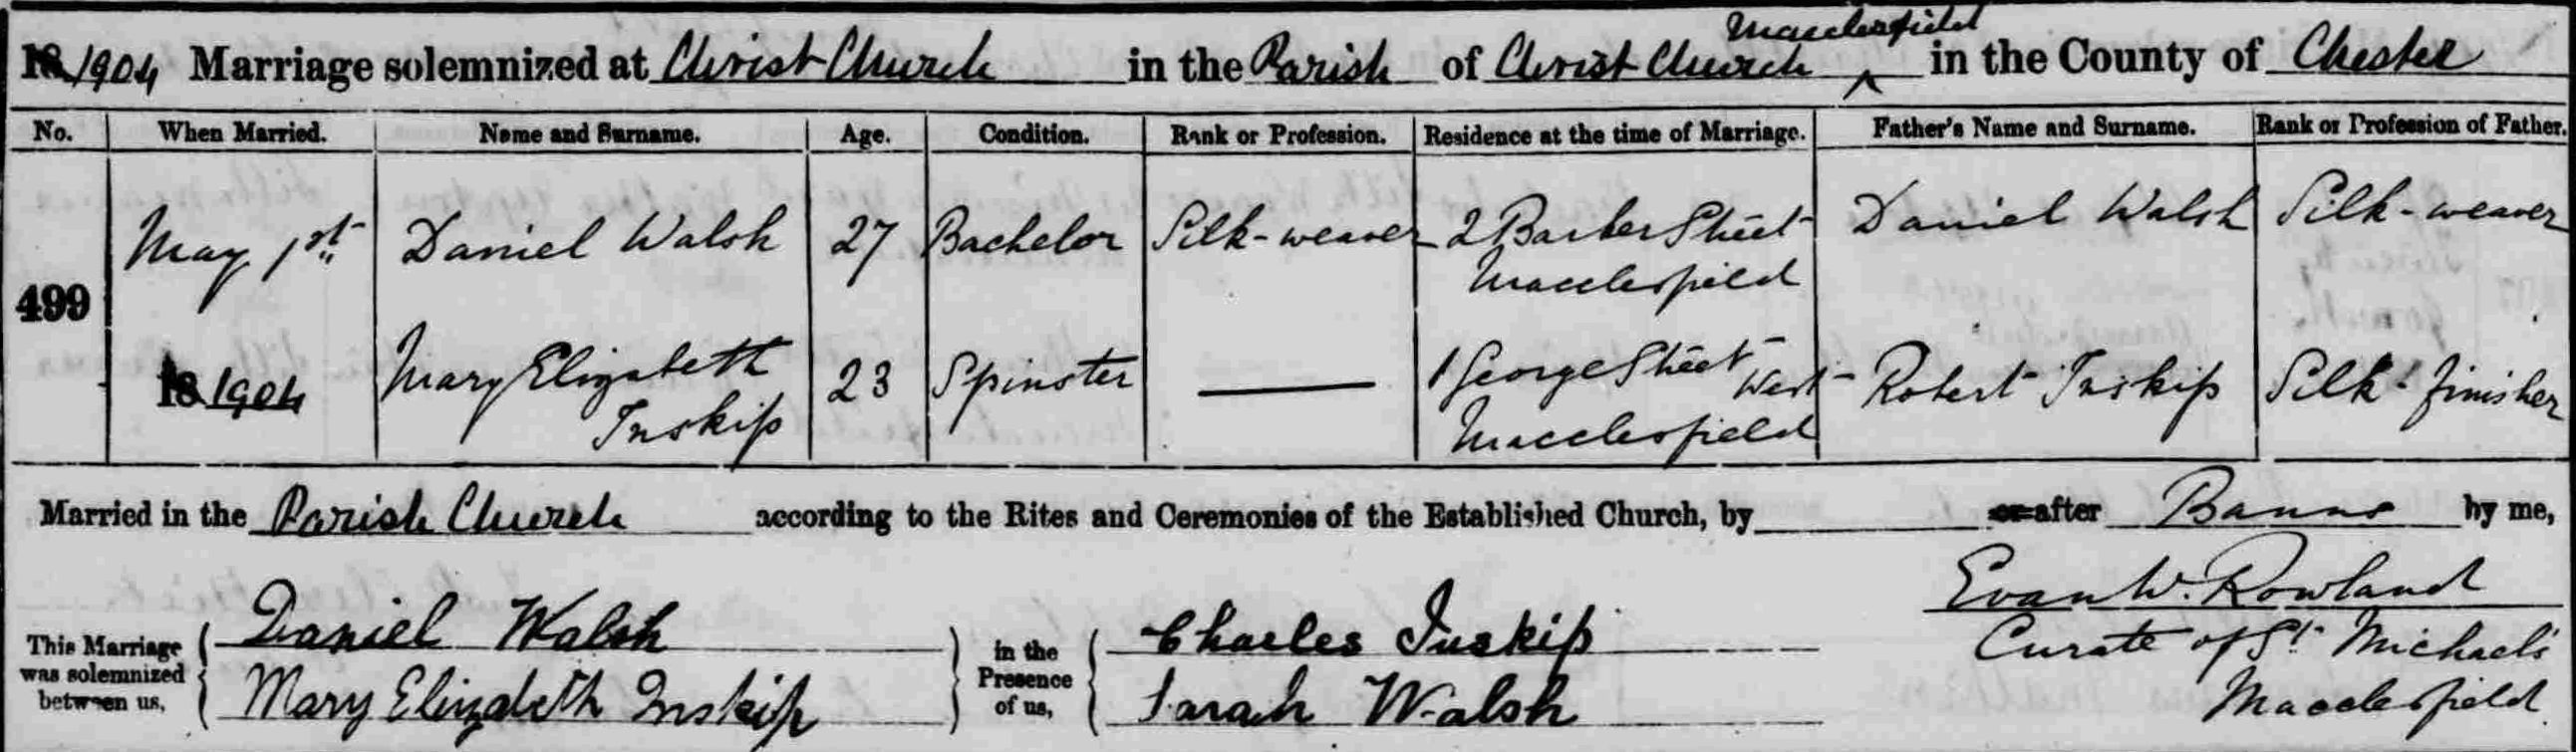 18 1904 Marriage solemnized at Christ Church in the Parish of Christ Church ^ Macclesfield in the County of Chester
No. When Married. Name and Surname. Age. Condition. Rank or Profession. Residence at the time of Marriage. Father's Name and Surname. Rank or Profession of Father.
499 May 1st 18 1904
Daniel Walsh 27 Bachelor Silk-weaver 2 Barber Street Macclesfield Daniel Walsh Silk-weaver
Mary Elizabeth Inskip 23 Spinster — 1 George Street West Macclesfield Robert Inskip Silk-finisher
Married in the Parish Church according to the Rites and Ceremonies of the Established Church, by or after Banns by me,
Evan W. Rowland
Curate of St. Michael's
Macclesfield
This Marriage was solemnized between us,
Daniel Walsh
Mary Elizabeth Inskip
in the Presence of us,
Charles Inskip
Sarah Walsh